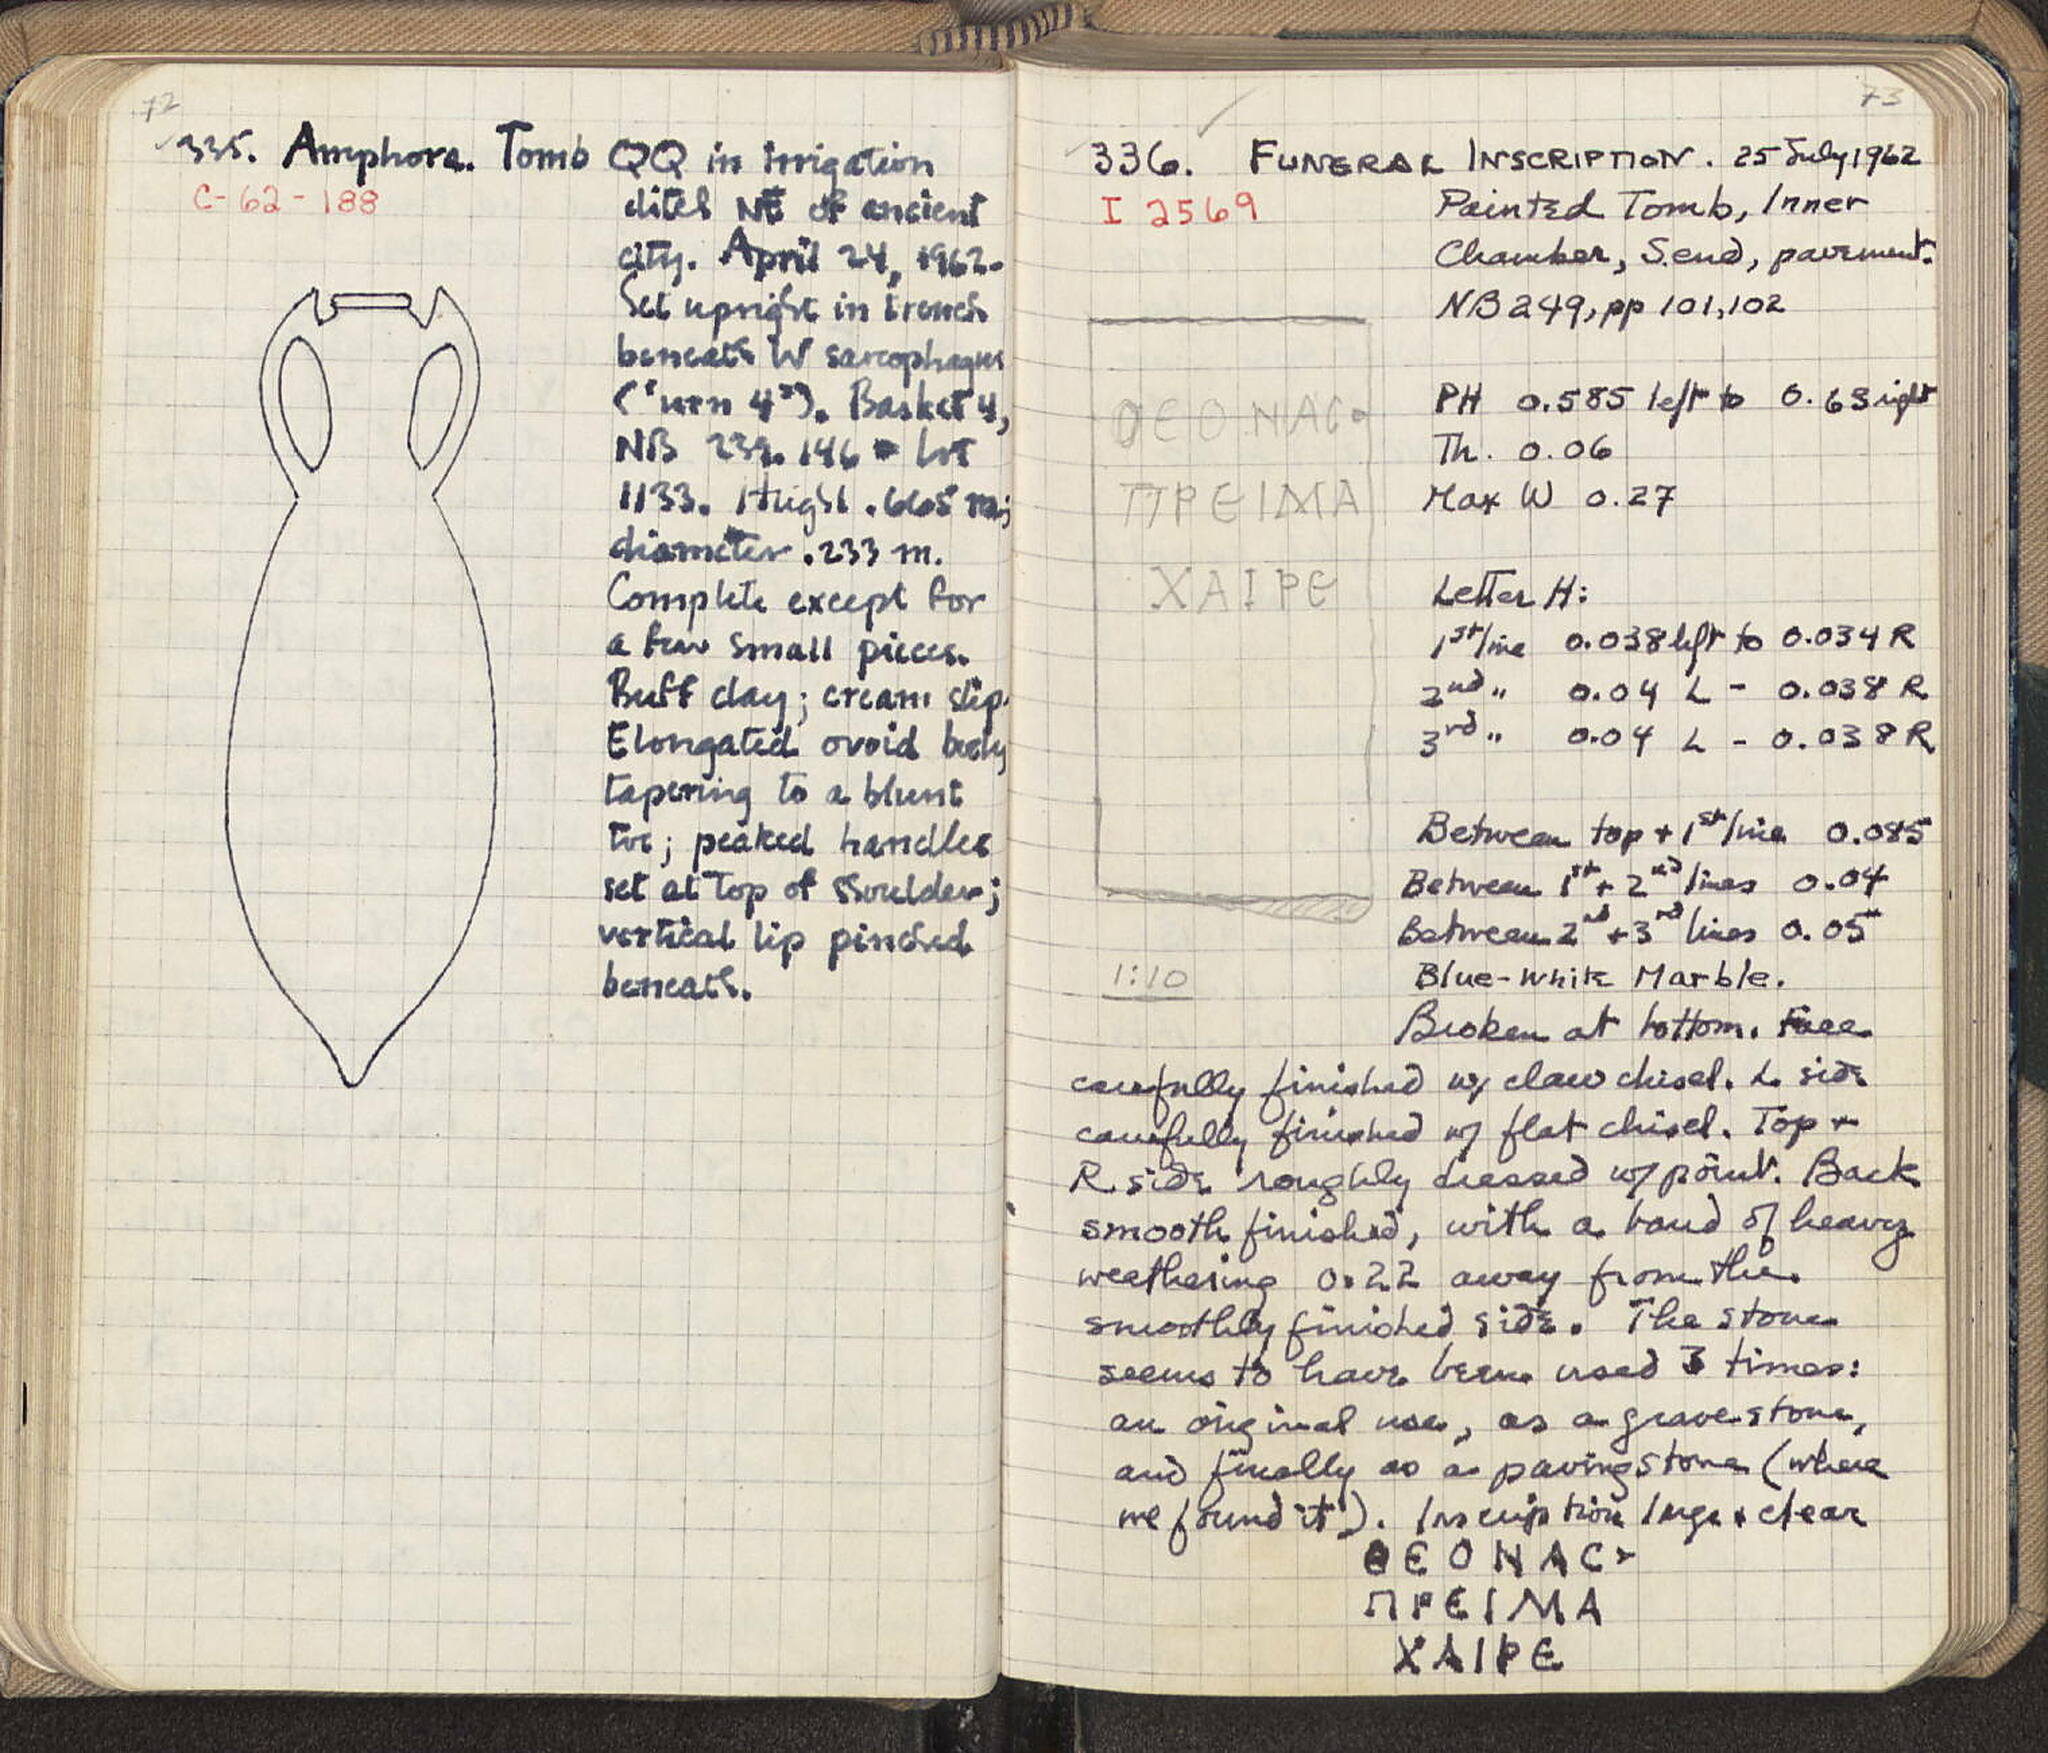 72
335. Amphora. Tomb QQ in irrigation
C-62-188
ditch NE of ancient
city. April 24, 1962.
Set upright in trench
beneath W sarcophagus
("urn 4"). Basket 4,
NB 239. 146 = Lot
1133. Height .665 m;
diameter .233 m.
Complete except for
a few small pieces.
Buff clay; cream slip.
Elongated ovoid body
tapering to a blunt
toe; peaked handles
set at top of shoulder;
vertical lip pinched
beneath.
73
336. FUNERAL INSCRIPTION. 25 July 1962
I 2569
Painted Tomb, Inner
Chamber, S. end, pavement.
NB 249, pp 101, 102
PH 0.585 left to 0.63 right
Th. 0.06
Max W 0.27
Letter H:
1st line 0.038 left to 0.034 R
2nd " 0.04 L - 0.038 R
3rd " 0.04 L - 0.038 R
Between top + 1st line 0.085
Between 1st + 2nd lines 0.04
Between 2nd + 3rd lines 0.05
ΘΕΟΝΑC
ΠΡΕΙΜΑ
ΧΑΙΡΕ
1:10
Blue-white Marble.
Broken at bottom. Face
carefully finished w/ claw chisel. L side
carefully finished w/ flat chisel. Top +
R side roughly dressed w/ point. Back
smooth finished, with a band of heavy
weathering 0.22 away from the
smoothly finished side. The stone
seems to have been used 3 times:
an original use, as a gravestone,
and finally as a paving stone (where
we found it). Inscription large + clear
ΘΕΟΝΑC
ΠΡΕΙΜΑ
ΧΑΙΡΕ